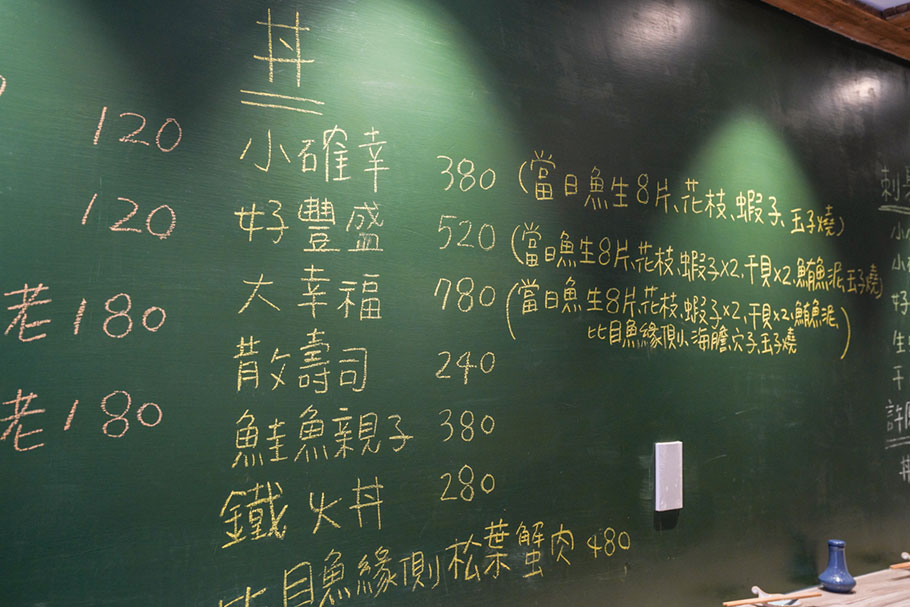 120
120
老 180
老 180
丼
小確幸 380 (當日魚生8片、花枝、蝦子、玉子燒)
好豐盛 520 (當日魚生8片、花枝、蝦子x2、干貝x2、鮪魚泥、玉子燒)
大幸福 780 (當日魚生8片、花枝、蝦子x2、干貝x2、鮪魚泥、
比目魚緣側、海膽、穴子、玉子燒)
散壽司 240
鮭魚親子 380
鐵火丼 280
比目魚緣側松葉蟹肉 480
刺
小
小
好
生
干